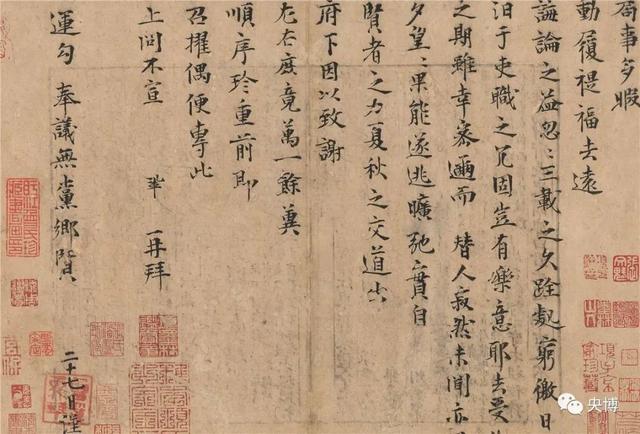 局事多暇
動履禔福去遠
誨論之益忽〻三載之久跧處窮徼日
汩于吏職之冗固豈有樂意耶去受
之期雖幸密邇而替人寂然未聞亦
夕望〻果能遂逃曠弛之責自
賢者之力夏秋之交道出
府下因以致謝
左右庶竟萬一餘冀
順序珍重前即
召擢偶便專此
上問不宣 鞏 再拜
運勾 奉議無黨鄉賢
二十七日謹
央博